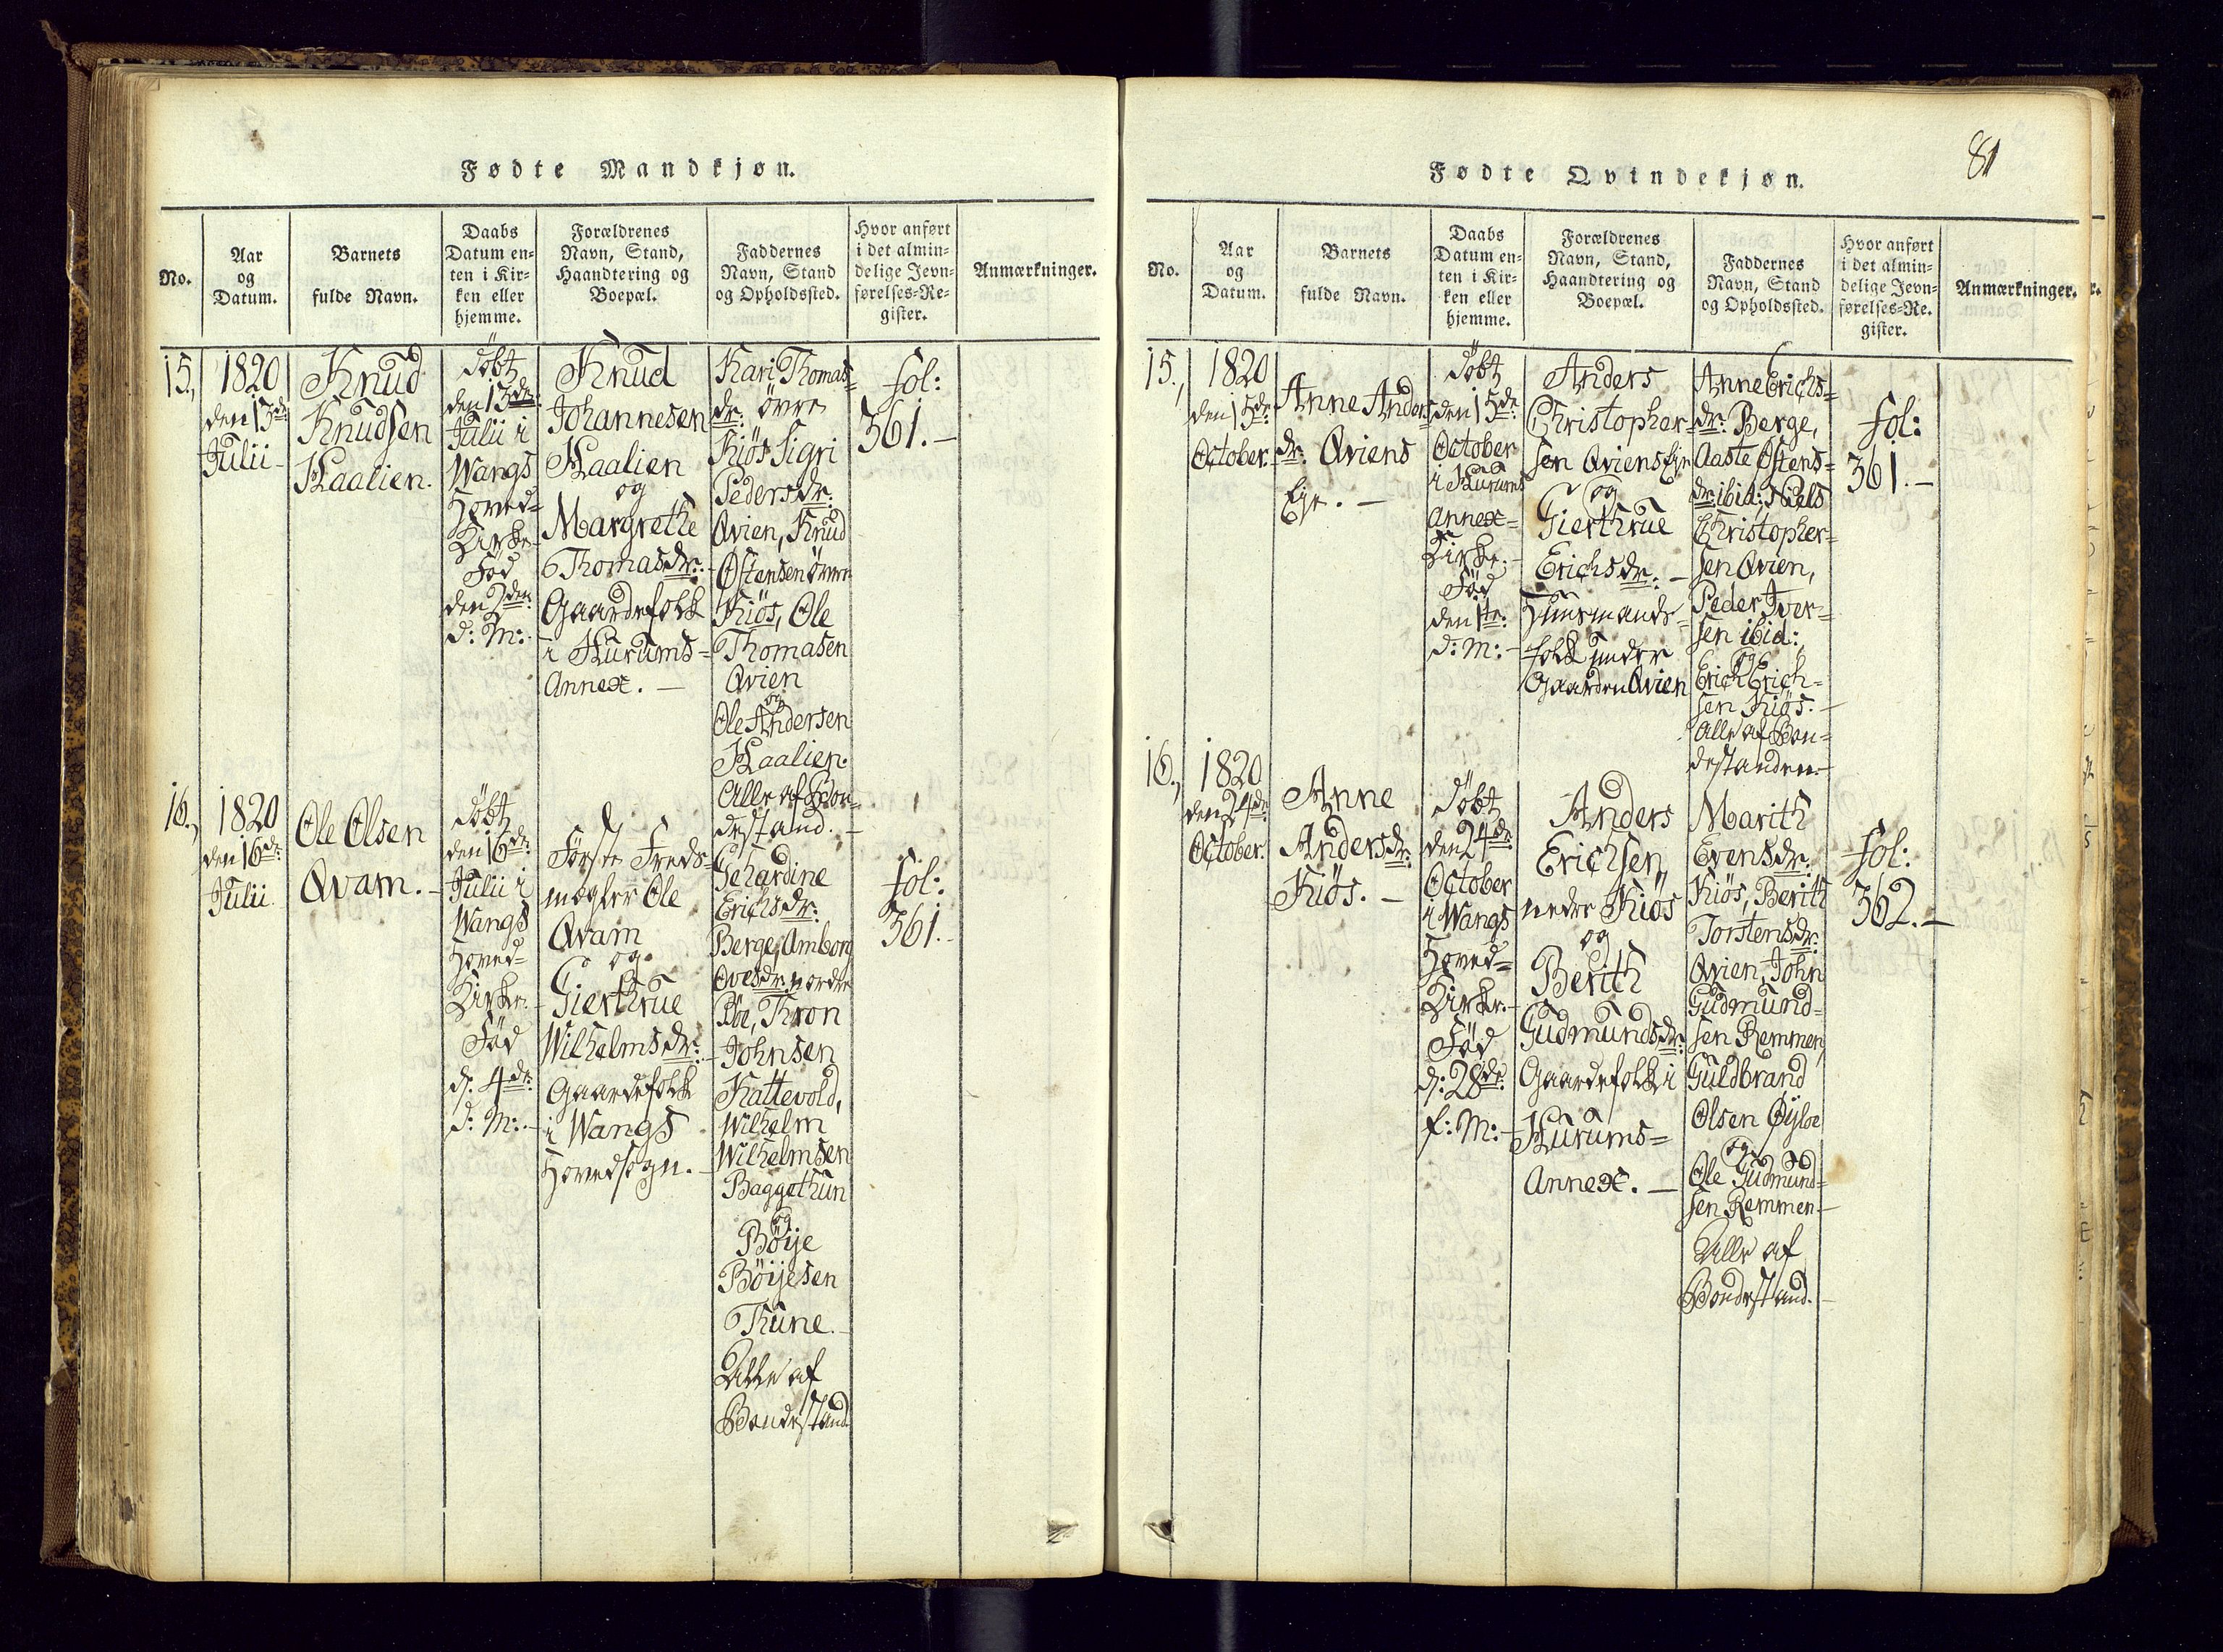 Fødte Mandkjøn.
No.
Aar
og
Datum.
Barnets
fulde Navn.
Daabs
Datum en-
ten i Kir-
ken eller
hjemme.
Forældrenes
Navn, Stand,
Haandtering og
Boepæl.
Faddernes
Navn, Stand
og Opholdssted.
Hvor anført
i det almin-
delige Jevn-
førelses-Re-
gister.
Anmærkninger.
15.,
1820
den 13de
Julii
Knud
Knudsen
Kaalien.
Döbt
den 13de
Julii i
Wangs
Hoved=
Kirke
Fød
den 2den
d: M:
Knud
Johannesen
Kaalien
og
Margrethe
Thomasdr:
Gaardefolk
i Hurums=
Annex.
Kari Thomas=
dr: övre
Kiös Sigri
Pedersdr:
Qvien, Knud
Östensen övre
Kiös, Ole
Thomasen
Qvien
og
Ole Andersen
Kaalien.
Alle af Bon=
destand.
fol:
361.
16.,
1820
den 16de
Julii
Ole Olsen
Qvam.
Döbt
den 16de
Julii i
Wangs
Hoved=
Kirke.
Fød
d: 4de
d: M:
Første Freds=
mægler Ole
Qvam
og
Gierthrue
Wilhelmsdr:
Gaardefolk
i Wangs
Hovedsogn.
Gehardine
Erichsdr:
Berge, Amborg
Ovesdr: nordre
Bøe, Thron
Johnsen
Kattevold,
Wilhelm
Wilhelmsen
Baggethun
og
Böije
Böijesen
Thune.
Alle af
Bondestand
fol:
361.
81
Fødte Qvindekjøn.
No.
Aar
og
Datum.
Barnets
fulde Navn.
Daabs
Datum en-
ten i Kir-
ken eller
hjemme.
Forældrenes
Navn, Stand,
Haandtering og
Boepæl.
Faddernes
Navn, Stand
og Opholdssted.
Hvor anført
i det almin-
delige Jevn-
førelses-Re-
gister.
Anmærkninger.
15.,
1820
den 15de
October.
Anne Anders
dr: Qviens
Eje.
Döbt
den 15de
October
i Hurums
Annex=
Kirke.
Fød
den 1te:
d: M:
Anders
Christopher=
sen Qviens Eje
og
Gierthrue
Erichsdr:
Huusmands=
folk under
Gaarden Qvien
Anne Erichs=
dr: Berge,
Aaste Østens=
dr: ibid: Niels
Christopher=
sen Qvien,
Peder Iver=
sen ibid:
og
Erich Erich=
sen Kiös.
Alle af Bon=
destanden.
fol:
361.
16.,
1820
den 24de
October.
Anne
Andersdr:
Kiös.
Döbt
den 24de
October
i Wangs
Hoved=
Kirke.
Fød
d: 28de
f: M:
Anders
Erichsen,
nedre Kiös
og
Berith
Gudmundsdr:
Gaardefolk i
Hurums=
Annex.
Marith
Evensdr:
Kiös, Berith
Torstensdr:
Qvien, John
Gudmund=
sen Remmen,
Guldbrand
Olsen Øijloe
og
Ole Gudmund=
sen Remmen
Alle af
Bondestand.
fol:
362.